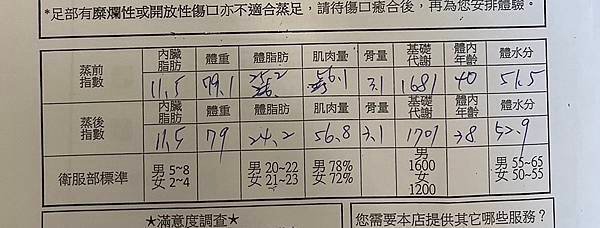 *足部有糜爛性或開放性傷口亦不適合蒸足，請待傷口癒合後，再為您安排體驗。
蒸前指數 內臟脂肪 體重 體脂肪 肌肉量 骨量 基礎代謝 體內年齡 體水分
11.5 79.1 25.2 56.1 3.1 1681 40 51.5
蒸後指數 內臟脂肪 體重 體脂肪 肌肉量 骨量 基礎代謝 體內年齡 體水分
11.5 79 24.2 56.8 3.1 1701 38 52.9
衛服部標準 男 5~8 女 2~4 男 20~22 女 21~23 男 78% 女 72% 男 1600 女 1200 男 55~65 女 50~55
★滿意度調查★ 您需要本店提供其它哪些服務？